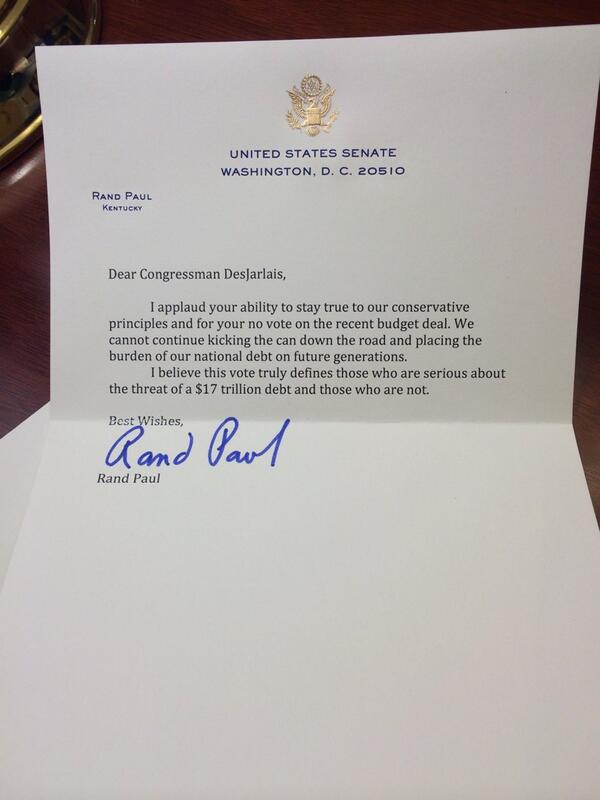 UNITED STATES SENATE
WASHINGTON, D. C. 20510
RAND PAUL
KENTUCKY
Dear Congressman DesJarlais,
I applaud your ability to stay true to our conservative
principles and for your no vote on the recent budget deal. We
cannot continue kicking the can down the road and placing the
burden of our national debt on future generations.
I believe this vote truly defines those who are serious about
the threat of a $17 trillion debt and those who are not.
Best Wishes,
Rand Paul
Rand Paul